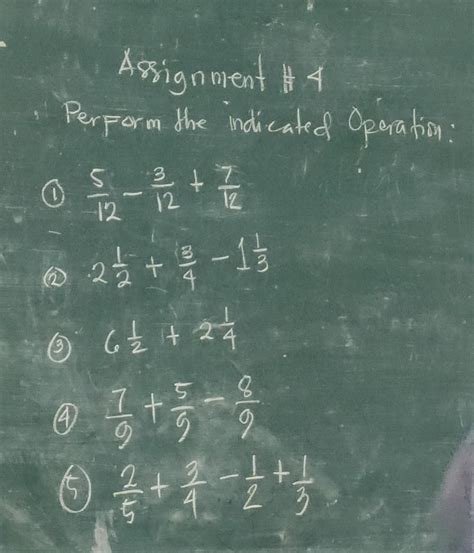 Assignment # 4
Perform the indicated Operation:
① 5/12 - 3/12 + 7/12
② 2 1/2 + 3/4 - 1 1/3
③ 6 1/2 + 2 1/4
④ 7/9 + 5/9 - 8/9
⑤ 2/5 + 3/4 - 1/2 + 1/3